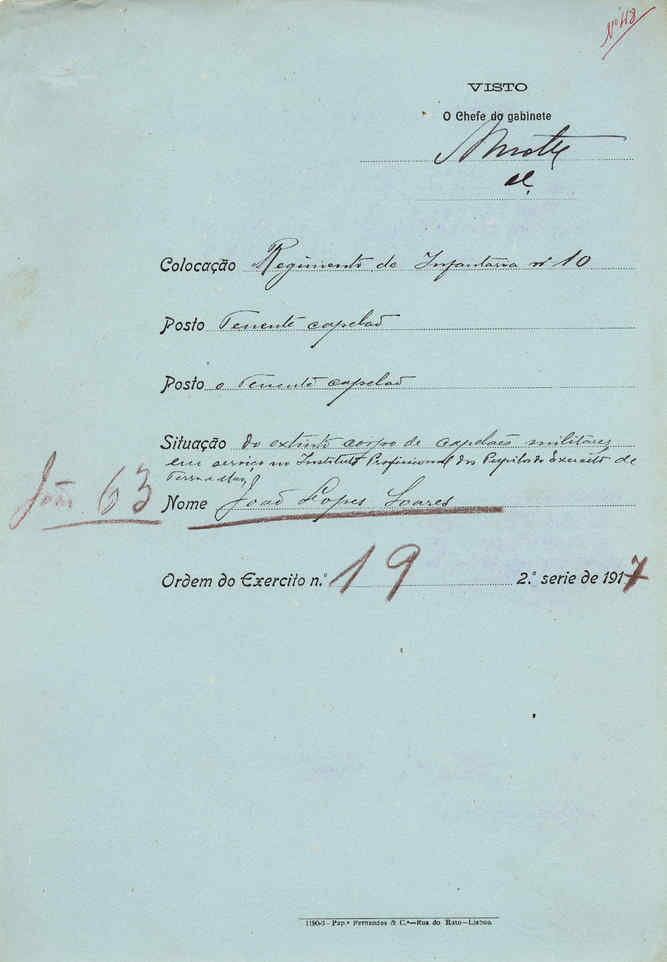 Nº 418
VISTO
O Chefe do gabinete
Colocação Regimento de Infantaria nº 10
Posto Tenente capelaõ
Posto o Tenente capelaõ
Situação Do extinto corpo de capelaẽs militares
em serviço no Instituto Profissional dos Pupilos do Exercito de
Terra e Mar
63
Nome Joaõ Lopes Soares
Ordem do Exercito n.º 19 2.ª serie de 1917
1190-3 - Pap.ª Fernandes & C.ª—Rua do Rato—Lisboa